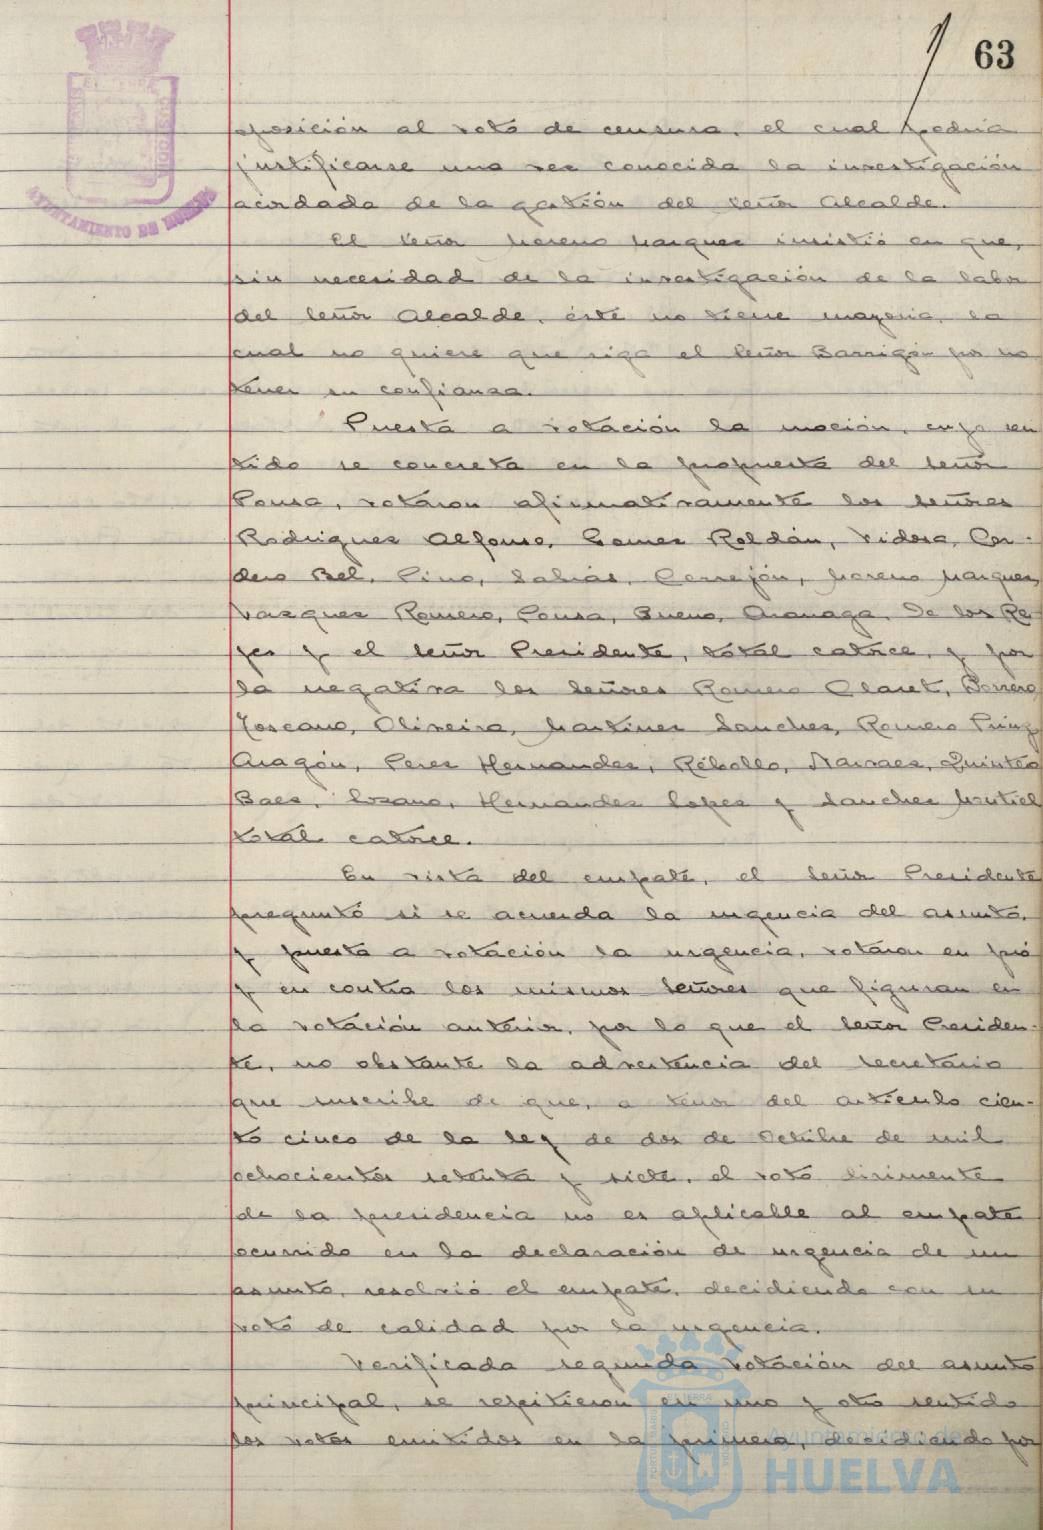 63
oposición al voto de censura, el cual podria
justificarse una vez conocida la investigación
acordada de la gestión del señor Alcalde.
El señor Moreno Marquez insistió en que,
sin necesidad de la investigación de la labor
del señor Alcalde, éste no tiene mayoria, la
cual no quiere que siga el señor Barrigón por no
tener su confianza.
Puesta a votación la moción, cuyo sen
tido se concreta en la propuesta del señor
Ponsa, votaron afirmativamente los señores
Rodriguez Alfonso, Gomez Roldán, Vidosa, Cor-
dero Bel, Pino, Sabrás, Cerrejón, Moreno Marquez,
Vazquez Romero, Ponsa, Bueno, Aranaga, De los Re-
yes y el señor Presidente, total catorce, y por
la negativa los señores Romero Claret, Borrero
Toscano, Oliveira, Martinez Sanchez, Romero
Aragón, Perez Hernandez, Rebollo, Narvaez, Quintero
Baez, Lozano, Hernandez Lopez y Sanchez Montiel
total catorce.
En vista del empate, el señor Presidente
preguntó si se acuerda la urgencia del asunto,
y puesta a votación la urgencia, votaron en pró
y en contra los mismos señores que figuran en
la votación anterior, por lo que el señor Presiden-
te, no obstante la advertencia del Secretario
que suscribe de que, a tenor del articulo cien-
to cinco de la ley de dos de Octubre de mil
ochocientos setenta y siete, el voto dirimente
de la presidencia no es aplicable al empate
ocurrido en la declaración de urgencia de un
asunto, resolvió el empate, decidiendo con su
voto de calidad por la urgencia.
Verificada segunda votación del asunto
principal, se repitieron en uno y otro sentido
los votos emitidos en la primera, decidiendo por
AYUNTAMIENTO DE HUELVA
Ayuntamiento de
HUELVA